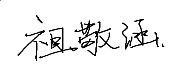 祖敬涵